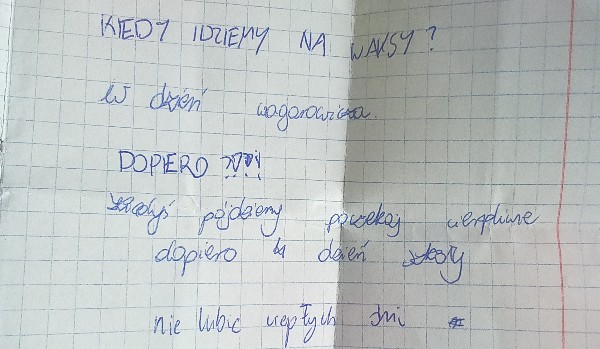 KIEDY IDZIEMY NA WAKSY?
W dzień wagarowicza.
DOPIERO ?!?!?!
pójdziemy poczekaj cierpliwie
dopiero w dzień
nie lubić ciepłych dni